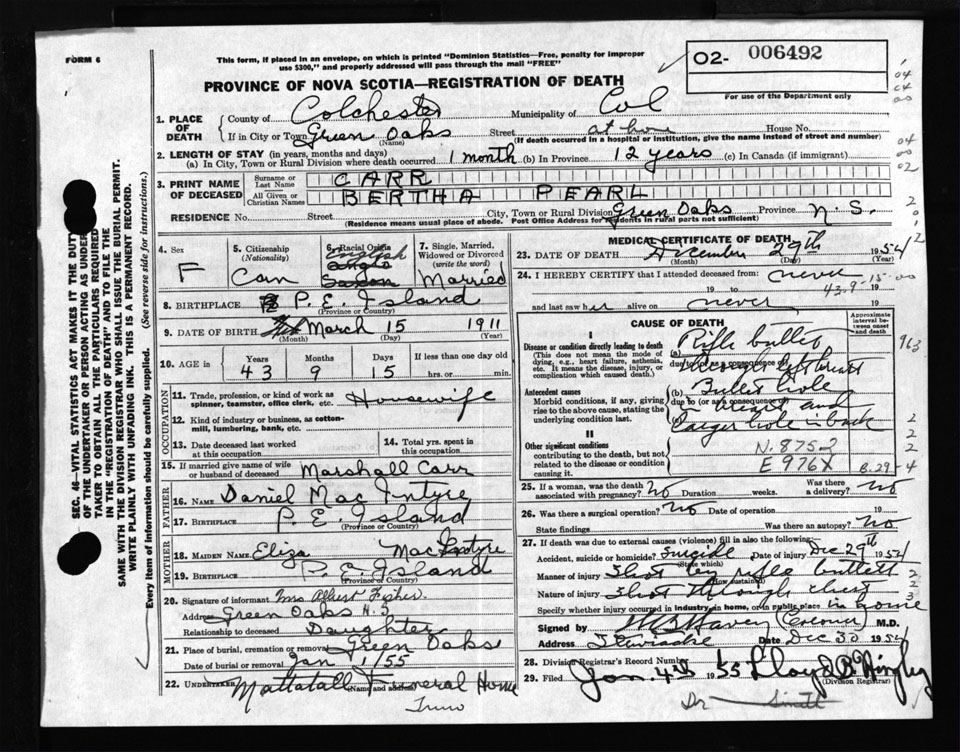 FORM 6
This form, if placed in an envelope, on which is printed "Dominion Statistics—Free, penalty for improper
use $300," and properly addressed will pass through the mail "FREE"
02- 006492
For use of the Department only
PROVINCE OF NOVA SCOTIA—REGISTRATION OF DEATH
1. PLACE OF DEATH
County of Colchester Municipality of Col
If in City or Town Green Oaks (Name) Street at home House No.
(If death occurred in a hospital or institution, give the name instead of street and number)
2. LENGTH OF STAY (in years, months and days)
(a) In City, Town or Rural Division where death occurred 1 month (b) In Province 12 years (c) In Canada (if immigrant)
3. PRINT NAME OF DECEASED
Surname or Last Name CARR
All Given or Christian Names BERTHA PEARL
RESIDENCE No. Street City, Town or Rural Division Green Oaks Province N. S.
(Residence means usual place of abode. Post Office Address for Residents in rural parts not sufficient)
4. Sex F
5. Citizenship (Nationality) Can
6. Racial Origin English
Saxon
7. Single, Married, Widowed or Divorced (write the word) Married
8. BIRTHPLACE P. E. Island
(Province or Country)
9. DATE OF BIRTH March 15 1911
(Month) (Day) (Year)
10. AGE in Years Months Days If less than one day old
43 9 15 hrs. or min.
OCCUPATION
11. Trade, profession, or kind of work as spinner, teamster, office clerk, etc. Housewife
12. Kind of industry or business, as cotton-mill, lumbering, bank, etc.
13. Date deceased last worked at this occupation
14. Total yrs. spent in this occupation
15. If married give name of wife or husband of deceased Marshall Carr
FATHER
16. NAME Daniel Mac Intyre
17. BIRTHPLACE P. E. Island
(Province or Country)
MOTHER
18. MAIDEN NAME Eliza MacIntyre
19. BIRTHPLACE P. E. Island
(Province or Country)
20. Signature of informant Mrs Albert Fisher.
Address Green Oaks N. S
Relationship to deceased Daughter
21. Place of burial, cremation or removal Green Oaks
Date of burial or removal Jan 1/55
22. UNDERTAKER Mattatall Funeral Home
(Name and address)
Truro
MEDICAL CERTIFICATE OF DEATH
23. DATE OF DEATH December 29th 1954
(Month) (Day) (Year)
24. I HEREBY CERTIFY that I attended deceased from: never
19 to 19
43-9-15-00
and last saw her alive on never 19
CAUSE OF DEATH
Approximate interval between onset and death
I
Disease or condition directly leading to death
(This does not mean the mode of dying, e.g., heart failure, asthenia, etc. It means the disease, injury, or complication which caused death.)
(a) Rifle bullet
due to (or as a consequence of)
through left breast
Antecedent causes
Morbid conditions, if any, giving rise to the above cause, stating the underlying condition last.
(b) Bullet hole
due to (or as a consequence of)
in breast and
(c) larger hole in back
II
Other significant conditions contributing to the death, but not related to the disease or condition causing it.
N. 875-2
E 976X
B.29-4
963
25. If a woman, was the death associated with pregnancy? No Duration weeks. Was there a delivery? No
26. Was there a surgical operation? No Date of operation 19
State findings Was there an autopsy? No
27. If death was due to external causes (violence) fill in also the following:
Accident, suicide or homicide? Suicide Date of injury Dec 29th 1954
(State which)
Manner of injury Shot by rifle bullet
(How sustained)
Nature of injury Shot through chest
Specify whether injury occurred in industry, in home, or in public place in home
Signed by (Coroner) M.D.
Address Stewiacke Date Dec 30 1954
28. Division Registrar's Record Number
29. Filed Jan. 4th 1955 Lloyd B Wingley
(Division Registrar)
Dr Smith
SEC. 46—VITAL STATISTICS ACT MAKES IT THE DUTY
OF THE UNDERTAKER OR PERSON ACTING AS UNDER-
TAKER TO OBTAIN ALL THE PARTICULARS REQUIRED
IN THE "REGISTRATION OF DEATH" AND TO FILE THE
SAME WITH THE DIVISION REGISTRAR WHO SHALL ISSUE THE BURIAL PERMIT.
WRITE PLAINLY WITH UNFADING INK. THIS IS A PERMANENT RECORD.
Every item of information should be carefully supplied. (See reverse side for instructions.)